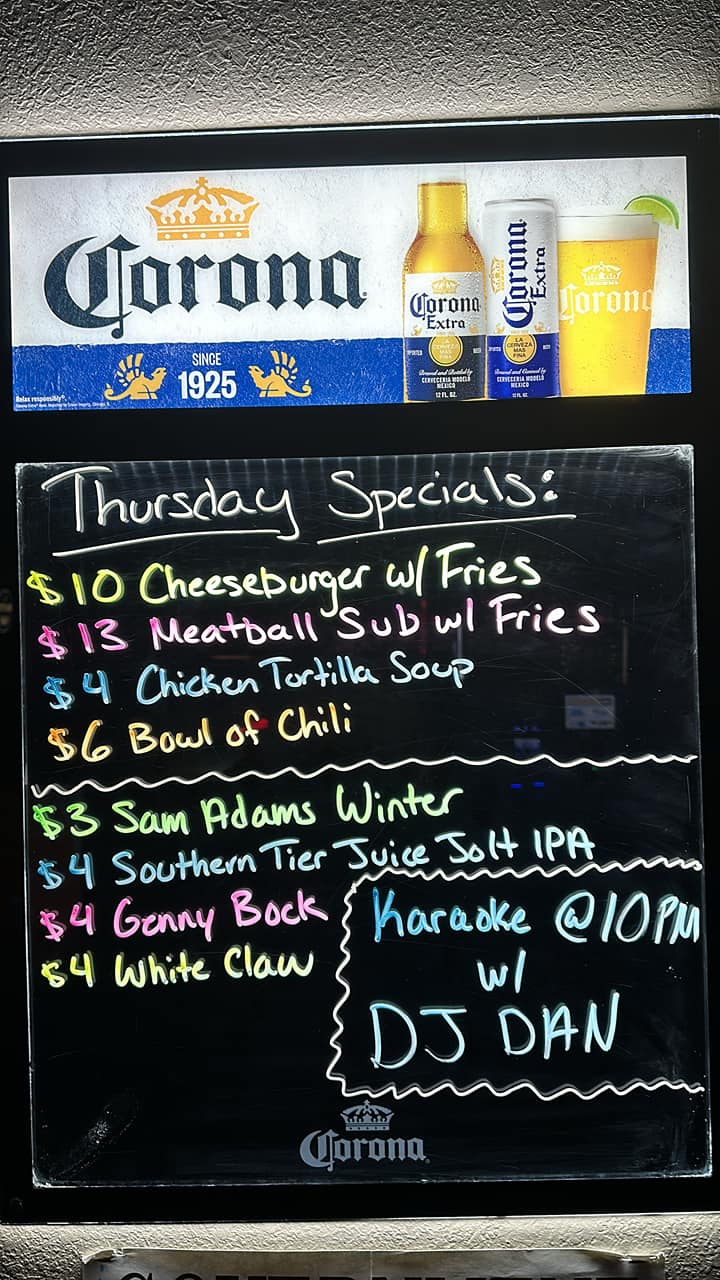 Corona
SINCE
1925
Relax responsibly®.
Corona Extra
LA CERVEZA MAS FINA
CERVECERIA MODELO
MEXICO
12 FL. OZ.
Corona Extra
LA CERVEZA MAS FINA
CERVECERIA MODELO
MEXICO
Corona
Thursday Specials:
$10 Cheeseburger w/ Fries
$13 Meatball Sub w/ Fries
$4 Chicken Tortilla Soup
$6 Bowl of Chili
$3 Sam Adams Winter
$4 Southern Tier Juice Jolt IPA
$4 Genny Bock
$4 White Claw
Karaoke @10PM
w/
DJ DAN
Corona